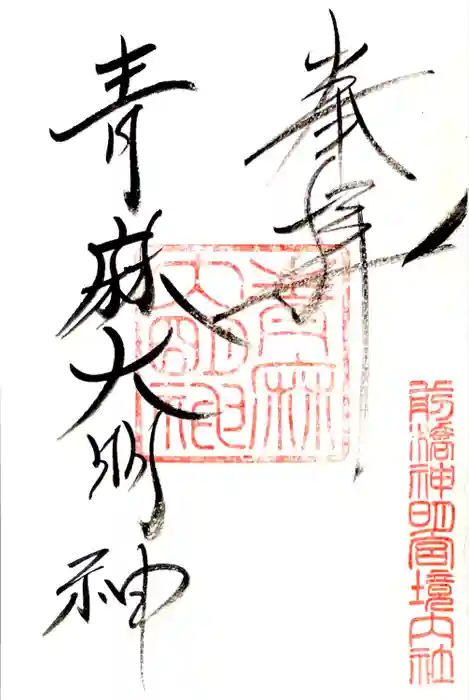 奉拝
前橋神明宮境内社
青麻
大明神
青麻大明神